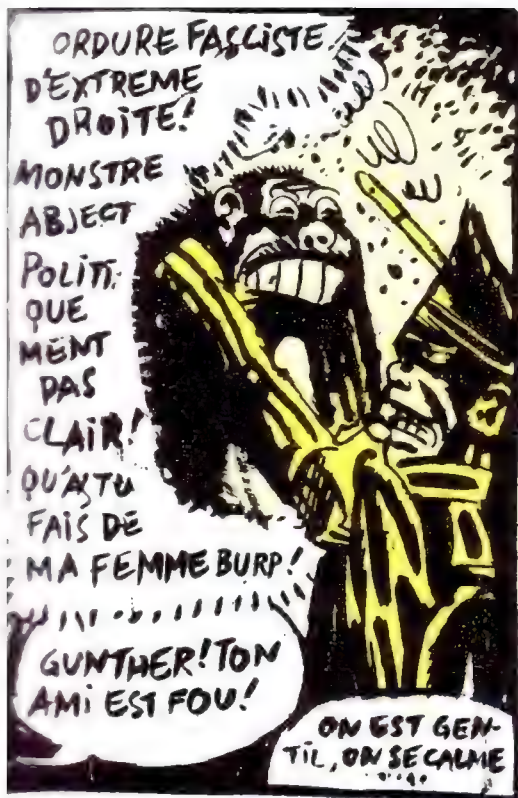 ORDURE FASCISTE
D'EXTREME
DROITE!
MONSTRE
ABJECT
POLITI-
QUE
MENT
PAS
CLAIR!
QU'AS TU
FAIS DE
MA FEMME BURP!
GUNTHER! TON
AMI EST FOU!
ON EST GEN-
TIL, ON SE CALME